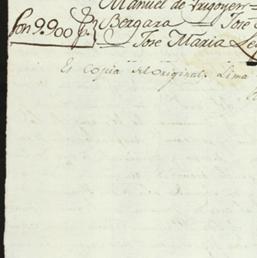 Manuel de Yrigoyen=
Son 9.900 p.s Bergaza — José
José Maria
Es copia del Original. Lima